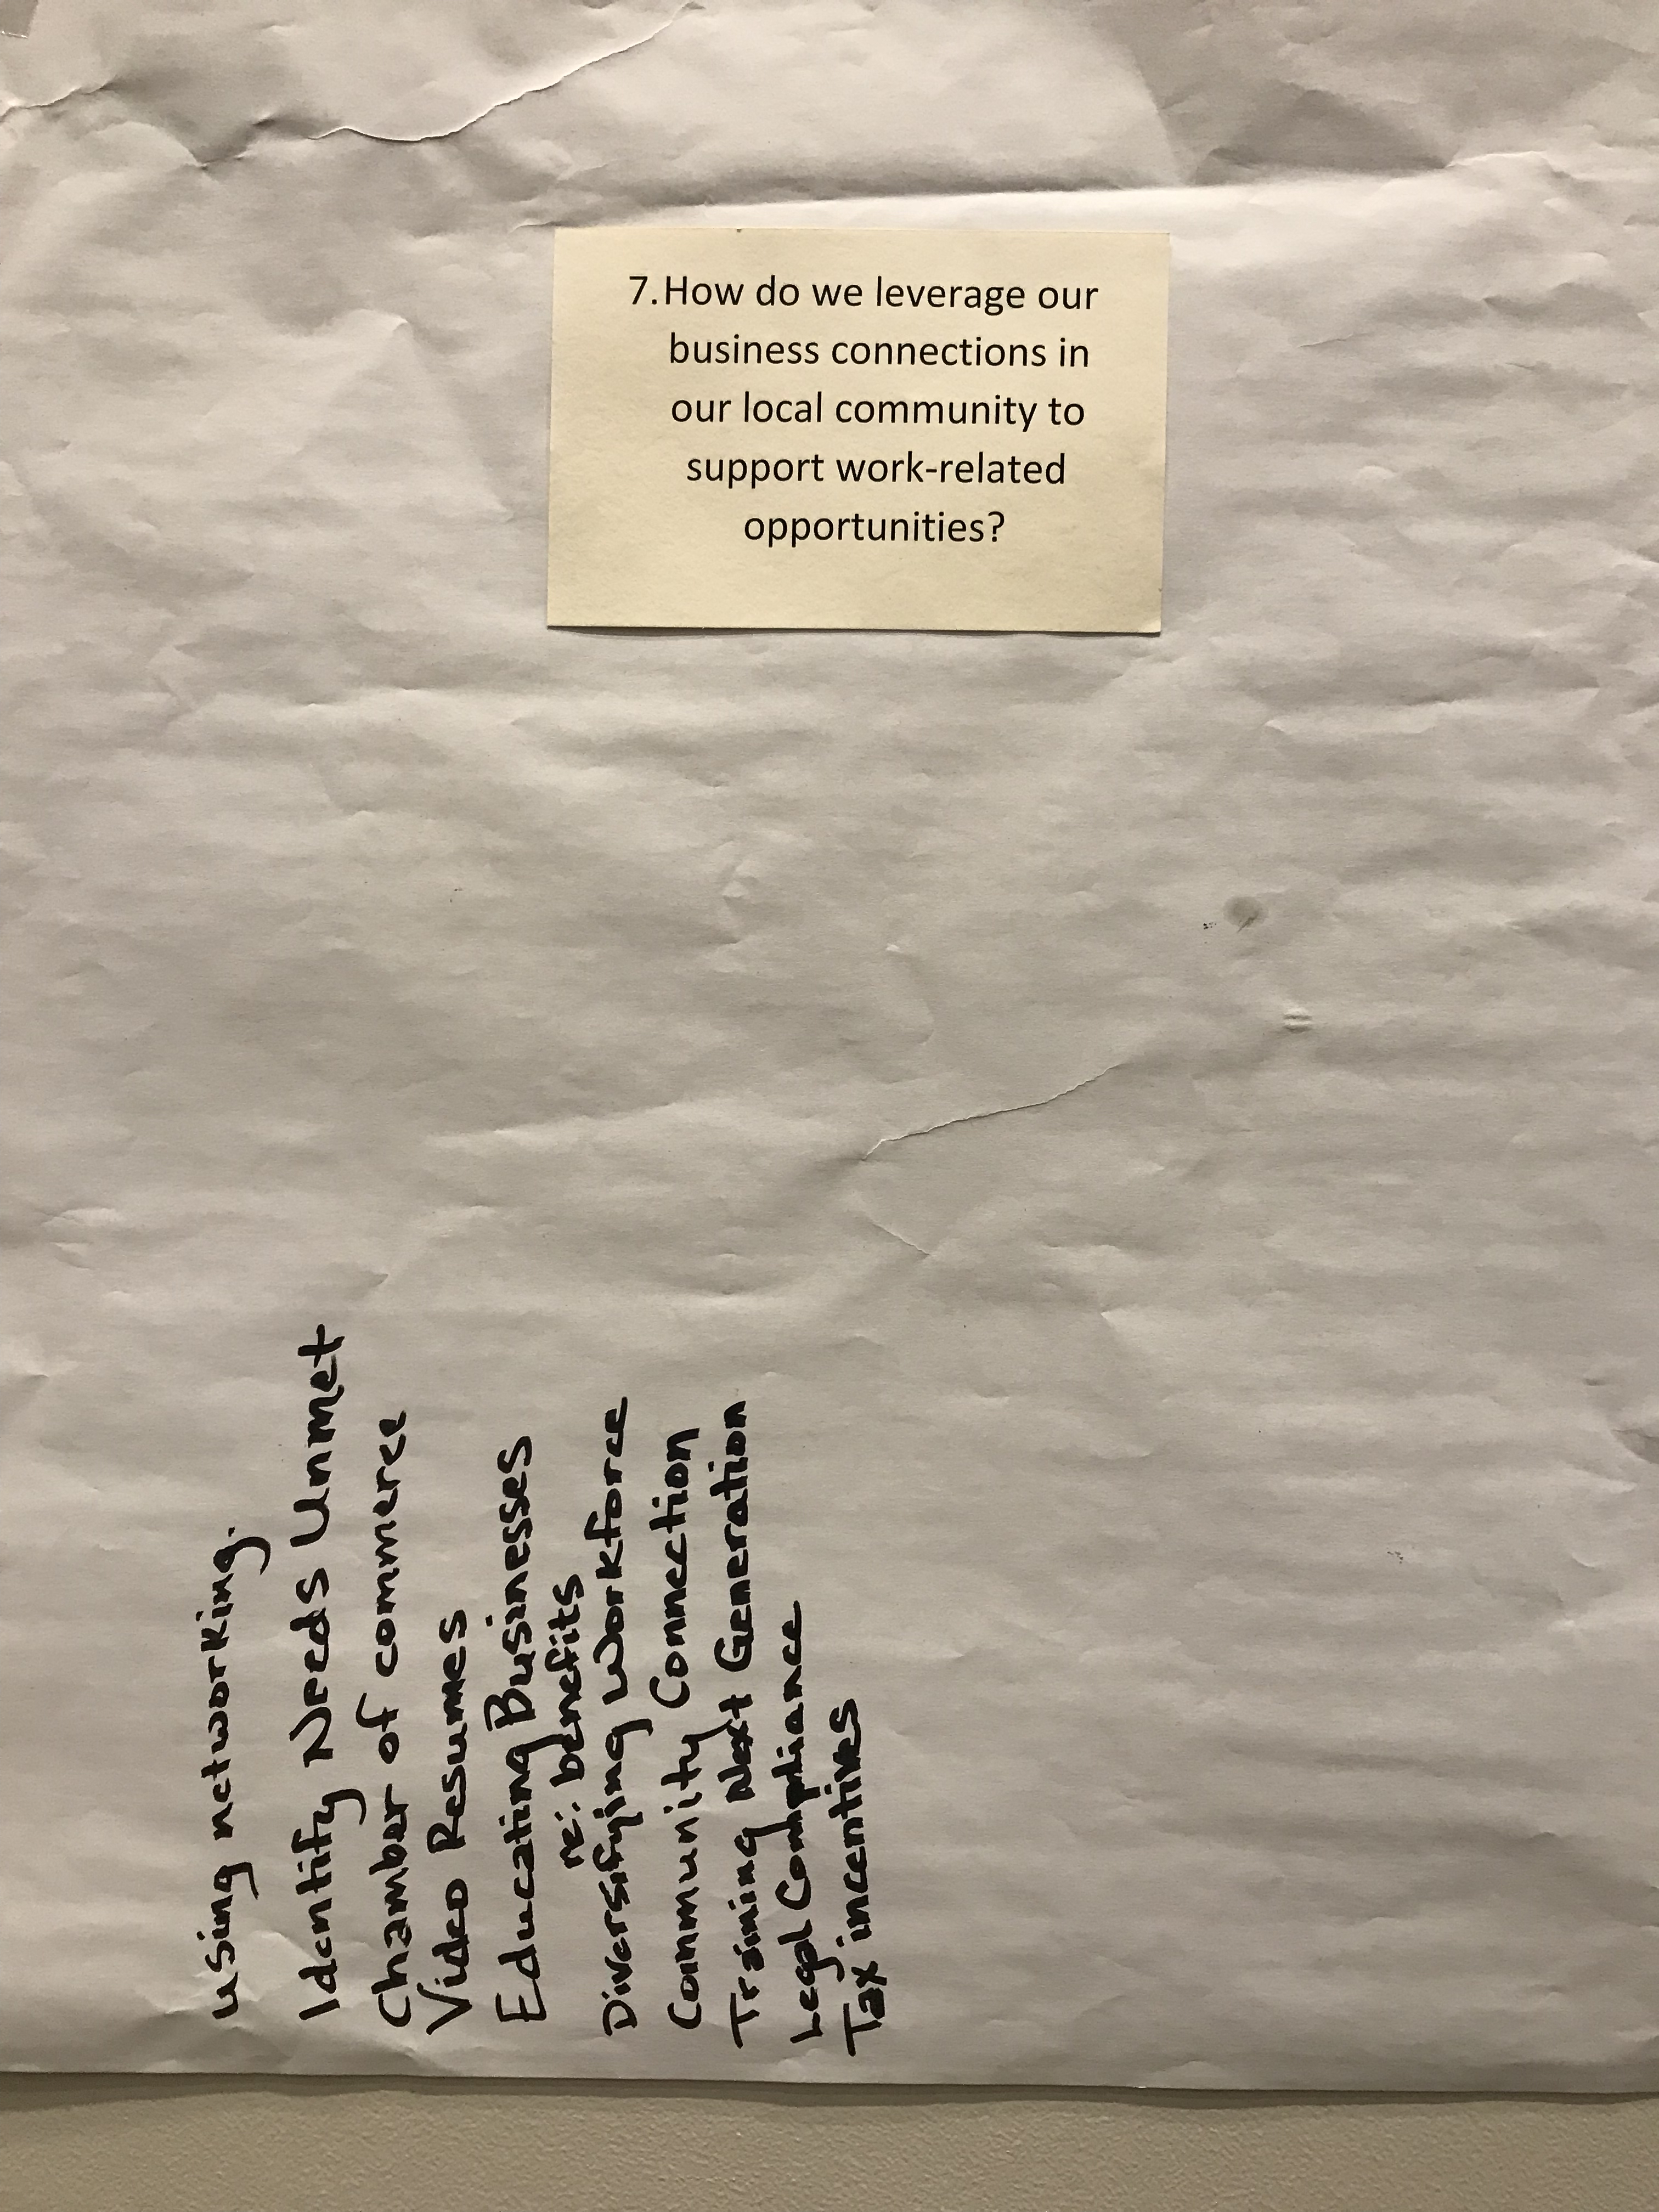 7. How do we leverage our
business connections in
our local community to
support work-related
opportunities?
using networking.
Identify Needs Unmet
Chamber of commerce
Video Resumes
Educating Businesses
re: benefits
Diversifying Workforce
Community Connection
Training Next Generation
Legal Compliance
Tax incentives